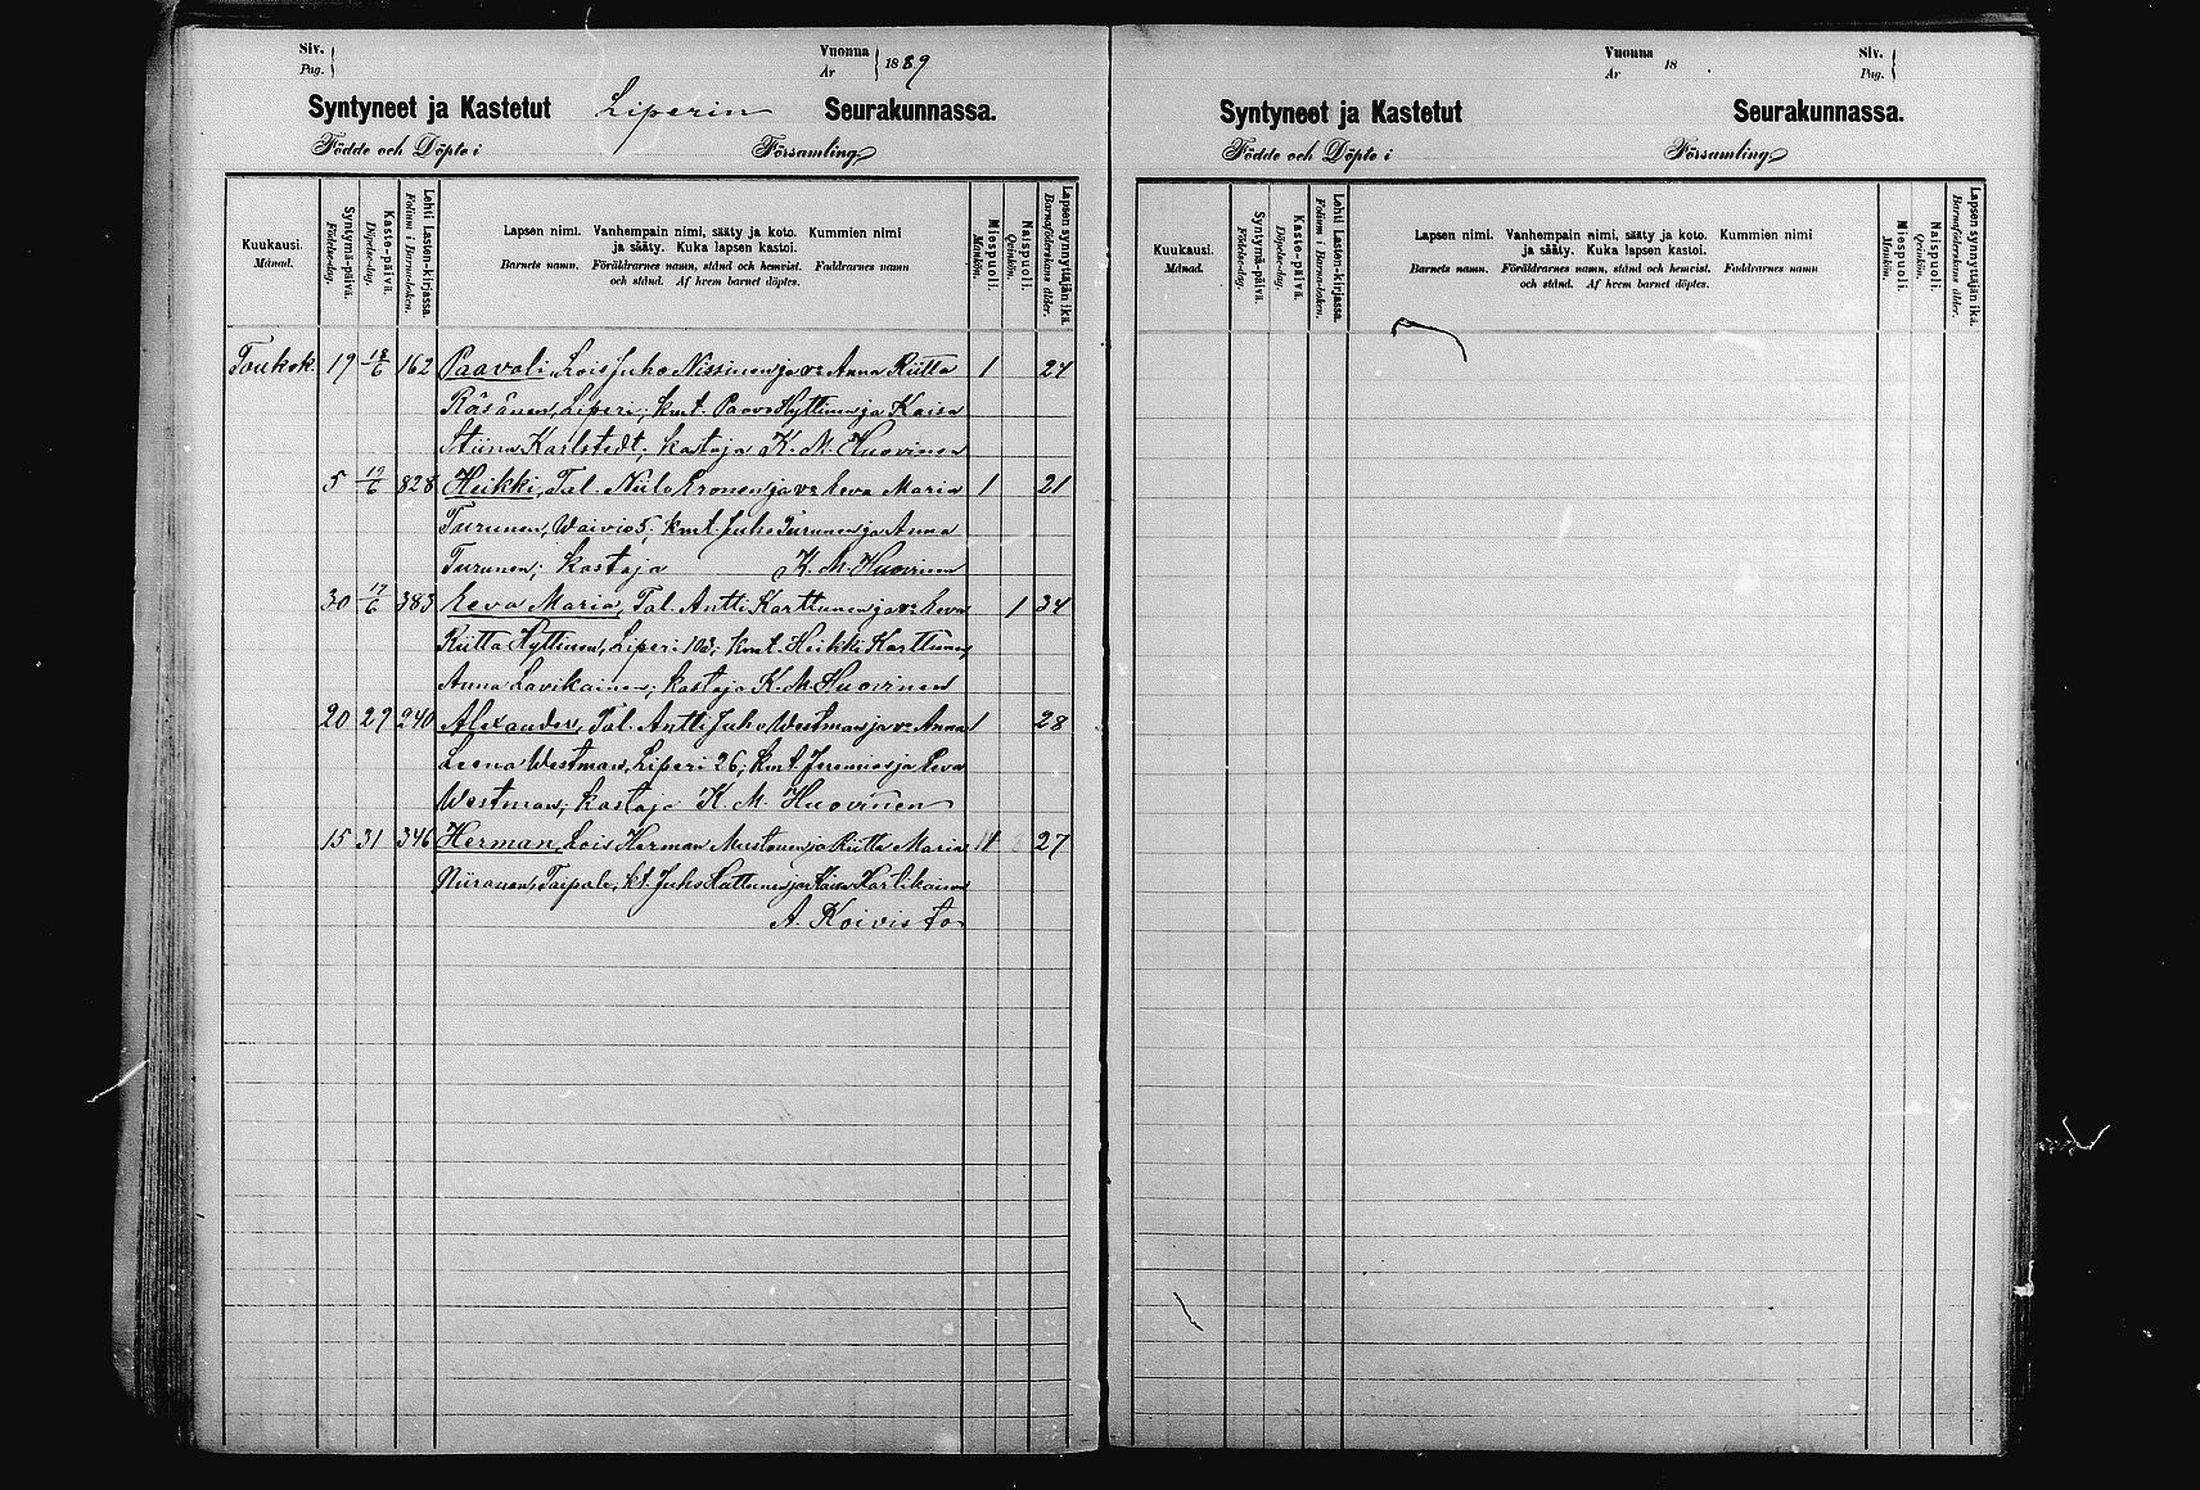 Siv.
Pag.
Vuonna
År
1889
Syntyneet ja Kastetut Liperin Seurakunnassa.
Födde och Döpte i Församling
Kuukausi.
Månad.
Syntymä-päivä.
Födelse-dag.
Kaste-päivä.
Döpelse-dag.
Lehti Lasten-kirjassa.
Folium i Barna-boken.
Lapsen nimi. Vanhempain nimi, sääty ja koto. Kummien nimi
ja sääty. Kuka lapsen kastoi.
Barnets namn. Föräldrarnes namn, stånd och hemvist. Faddrarnes namn
och stånd. Af hvem barnet döptes.
Miespuoli.
Mankön.
Naispuoli.
Qvinkön.
Lapsen synnyttäjän ikä.
Barnaföderskans ålder.
Toukok. 19 18/6 162 Paavali, Lois Juho Nissinen ja vo Anna Riitta 1 24
Räsänen, Liperi; kmt. Paavo Hyttinen ja Kaisa
Stiina Karlstedt; kastaja K. M. Huovinen
5 19/6 828 Heikki, Tal. Niilo Eronen ja vo Eeva Maria 1 21
Turunen, Waivio 5; kmt. Juho Turunen ja Anna
Turunen; kastaja K. M. Huovinen
30 17/6 383 Eeva Maria, Tal. Antti Karttunen ja vo Eeva 1 34
Riitta Hyttinen, Liperi 10; kmt. Heikki Karttunen,
Anna Lavikainen; kastaja K. M. Huovinen
20 29 240 Alexander, Tal. Antti Juho Westman ja vo Anna 1 28
Leena Westman, Liperi 26; kmt. Jeremias ja Eeva
Westman; kastaja K. M. Huovinen
15 31 346 Herman, Lois Herman Mustonen ja Riitta Maria 27
Niiranen, Taipale, kt. Juho Hattunen ja Kaisa
A. Koivisto
Vuonna
År
18
Siv.
Pag.
Syntyneet ja Kastetut Seurakunnassa.
Födde och Döpte i Församling
Kuukausi.
Månad.
Syntymä-päivä.
Födelse-dag.
Kaste-päivä.
Döpelse-dag.
Lehti Lasten-kirjassa.
Folium i Barna-boken.
Lapsen nimi. Vanhempain nimi, sääty ja koto. Kummien nimi
ja sääty. Kuka lapsen kastoi.
Barnets namn. Föräldrarnes namn, stånd och hemvist. Faddrarnes namn
och stånd. Af hvem barnet döptes.
Miespuoli.
Mankön.
Naispuoli.
Qvinkön.
Lapsen synnyttäjän ikä.
Barnaföderskans ålder.